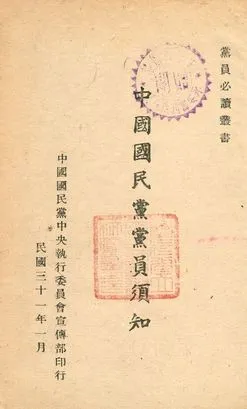 黨員必讀叢書
中國國民黨黨員須知
中國國民黨中央執行委員會宣傳部印行
民國三十一年一月